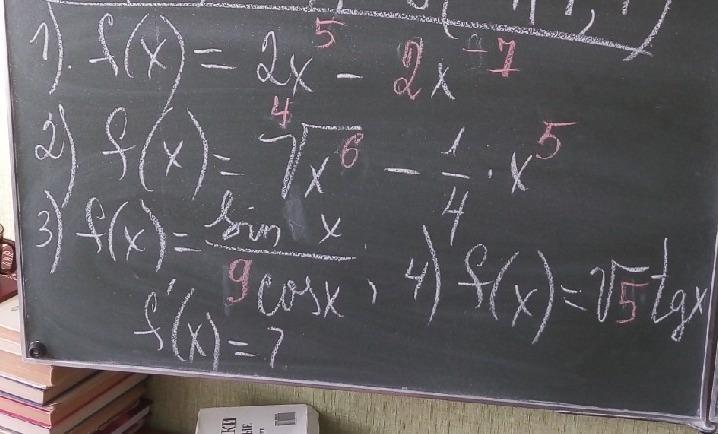 1). f(x) = 2x⁵ - 2x⁻⁷
2) f(x) = ⁴√x⁶ - 1/4 · x⁵
3) f(x) = sin x / 9cosx , 4) f(x) = √5 tgx
f'(x) = ?